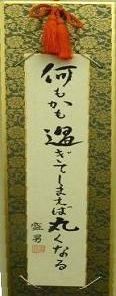 何もかも過ぎてしまえば丸くなる